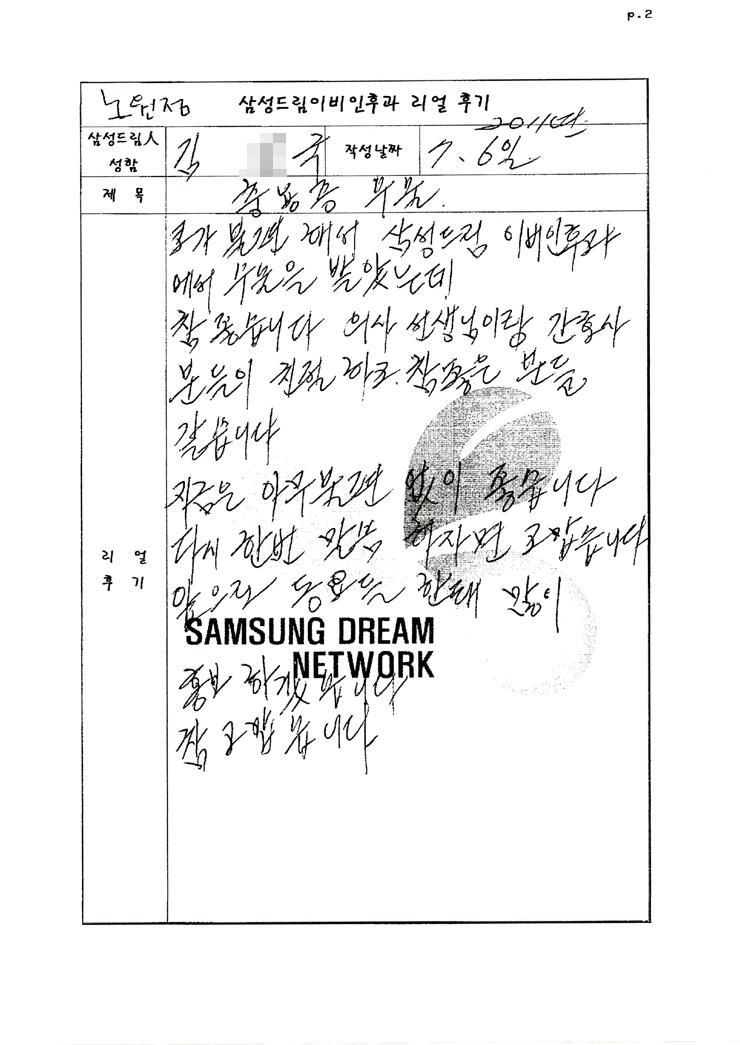 p.2
노원점 삼성드림이비인후과 리얼 후기
2011년
삼성드림人
성함
김 국
작성날짜
7. 6일
제 목
축농증 수술.
코가 불편 해서 삼성드림 이비인후과
에서 수술을 받았는데
참 좋습니다 의사 선생님이랑 간호사
분들이 친절 하고. 참좋은 분들
같습니다
지금은 아무불편 없이 좋습니다
다시 한번 말씀 하자면 고맙습니다
앞으로 동료들 한태 많이
리 얼
후 기
SAMSUNG DREAM
NETWORK
홍보 하겠습니다
참 고맙습니다